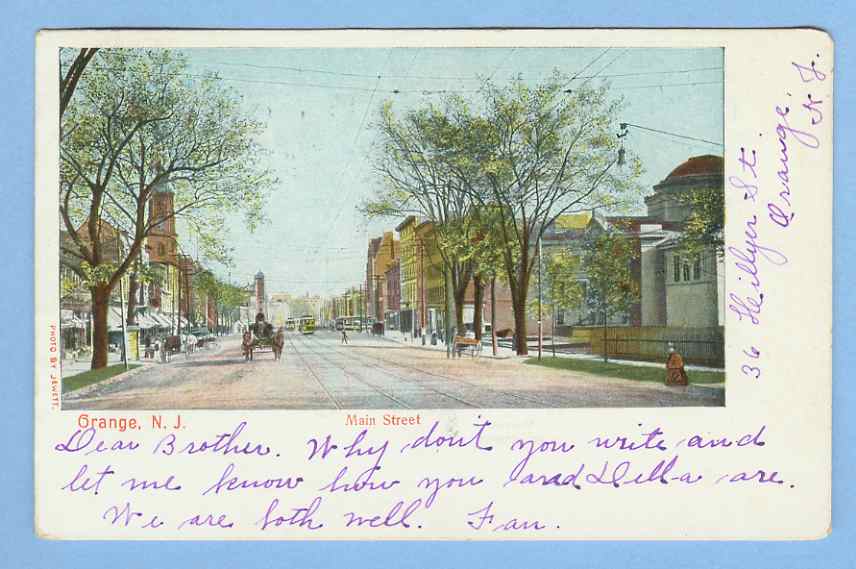 PHOTO BY JEWETT.
Orange, N. J.
Main Street
Dear Brother. Why don't you write and
let me know how you and Della are.
We are both well. Fan.
36 Hillyer St.
Orange,
N J.